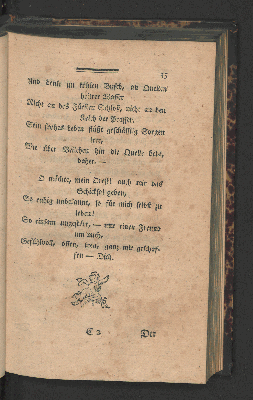 15
Und denke im kühlen Busch, an Quellen
heitrer Wasser
Nicht an des Fürsten Schloß, nicht an den
Kelch der Prasser.
Sein frohes Leben fließt geschäftig Sorgen
leer,
Wie über Veilchen hin die Quelle bebt,
daher. —
O möchte, mein Orest! auch mir das
Schicksal geben,
So ruhig unbekannt, so für mich selbst zu
leben!
So einsam ungestört, — nur einen Freund
um mich,
Gefühlvoll, offen, treu, ganz mir geschaf-
fen — Dich.
C 2
Der